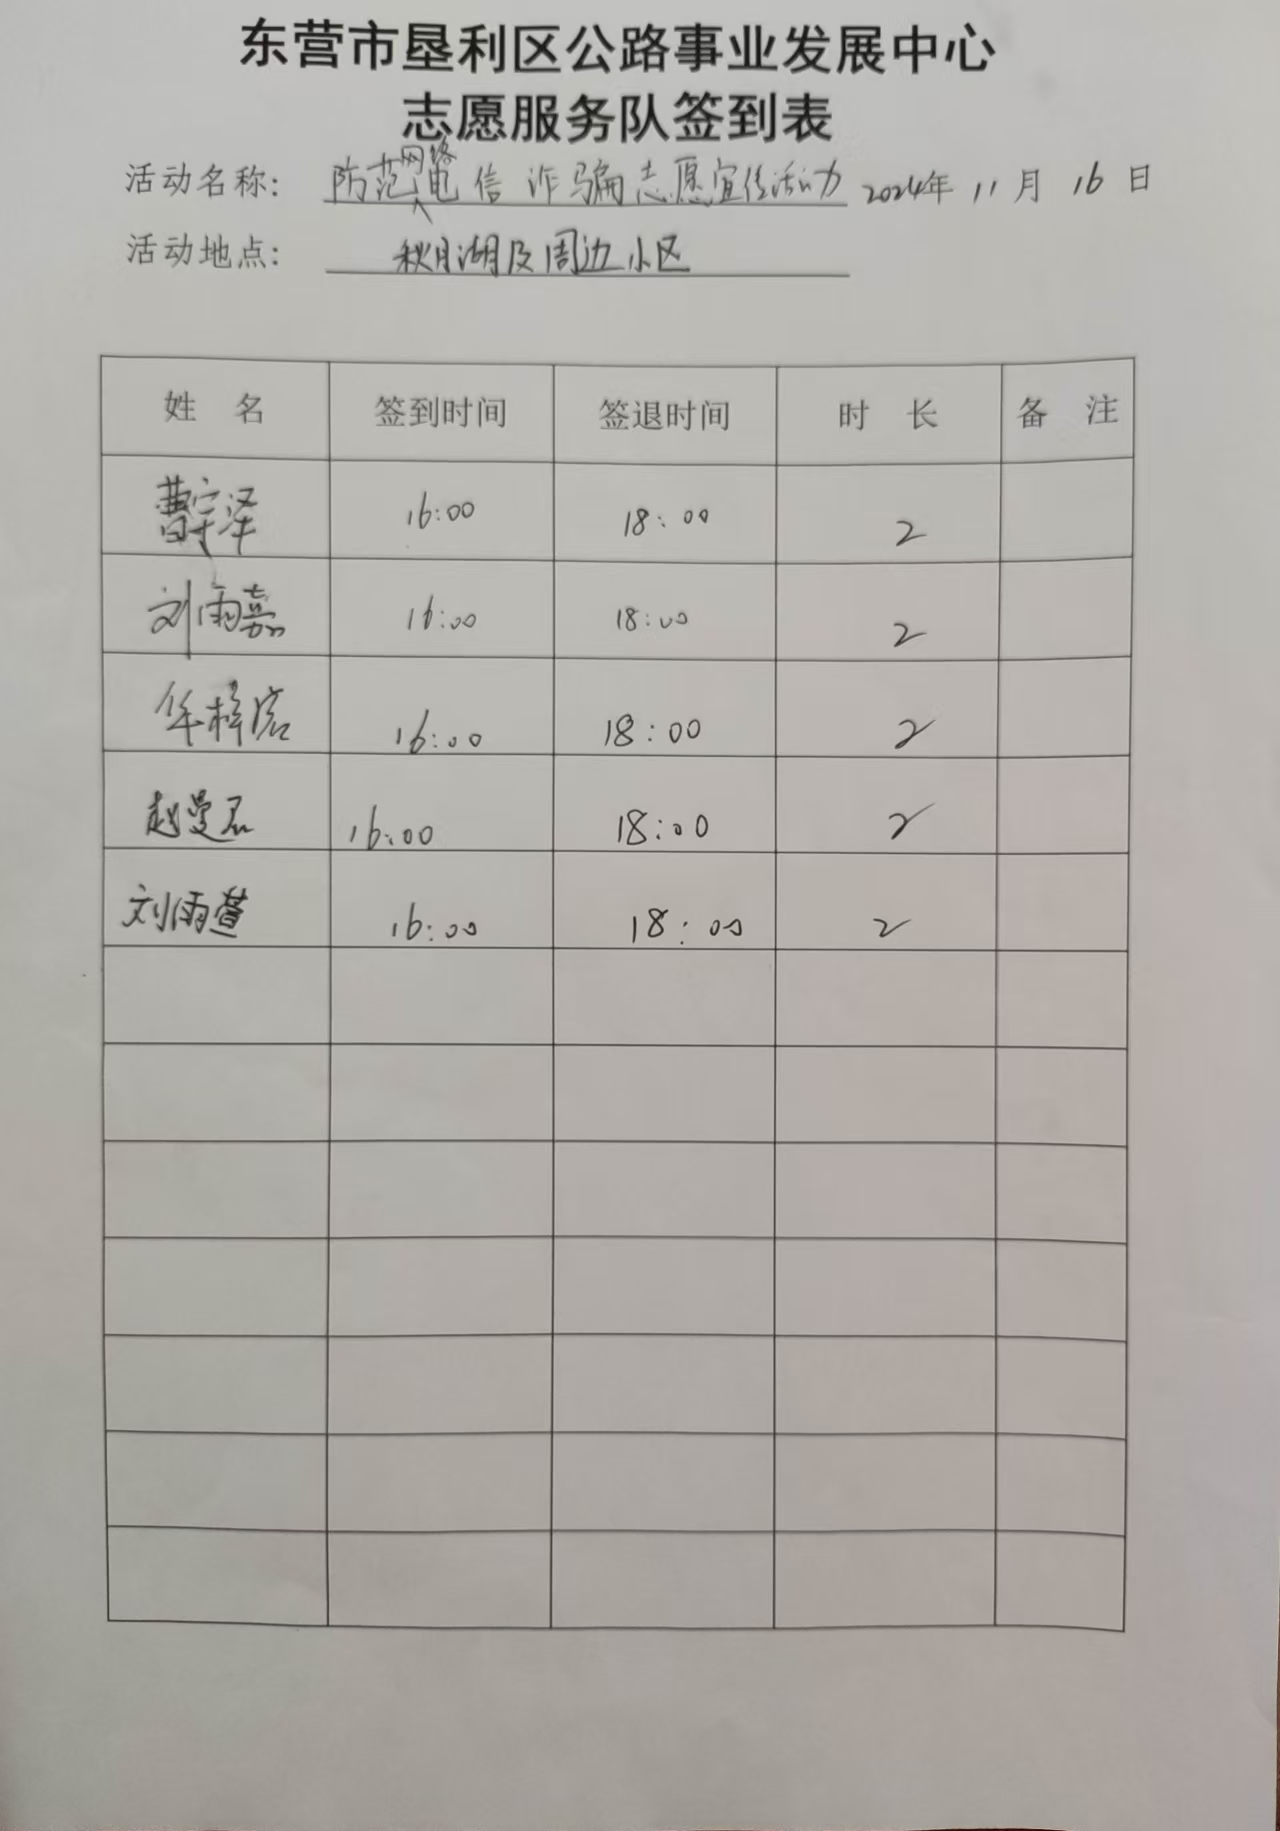 东营市垦利区公路事业发展中心
志愿服务队签到表
活动名称: 防范网络电信诈骗志愿宣传活动 2024年 11月 16日
活动地点: 秋月湖及周边小区
姓 名 签到时间 签退时间 时 长 备 注
曹宇泽 16:00 18:00 2
刘雨嘉 16:00 18:00 2
16:00 18:00 2
赵曼君 16:00 18:00 2
刘雨萱 16:00 18:00 2